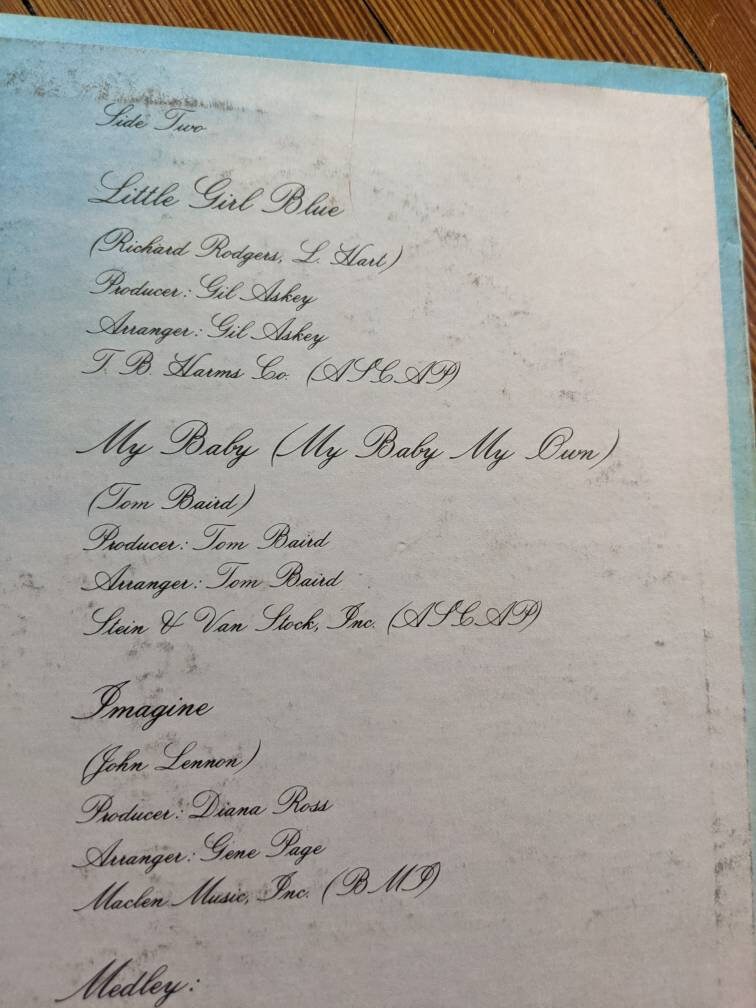 Side Two
Little Girl Blue
(Richard Rodgers, L. Hart)
Producer: Gil Askey
Arranger: Gil Askey
T. B. Harms Co. (ASCAP)
My Baby (My Baby My Own)
(Tom Baird)
Producer: Tom Baird
Arranger: Tom Baird
Stein & Van Stock, Inc. (ASCAP)
Imagine
(John Lennon)
Producer: Diana Ross
Arranger: Gene Page
Maclen Music, Inc. (BMI)
Medley: